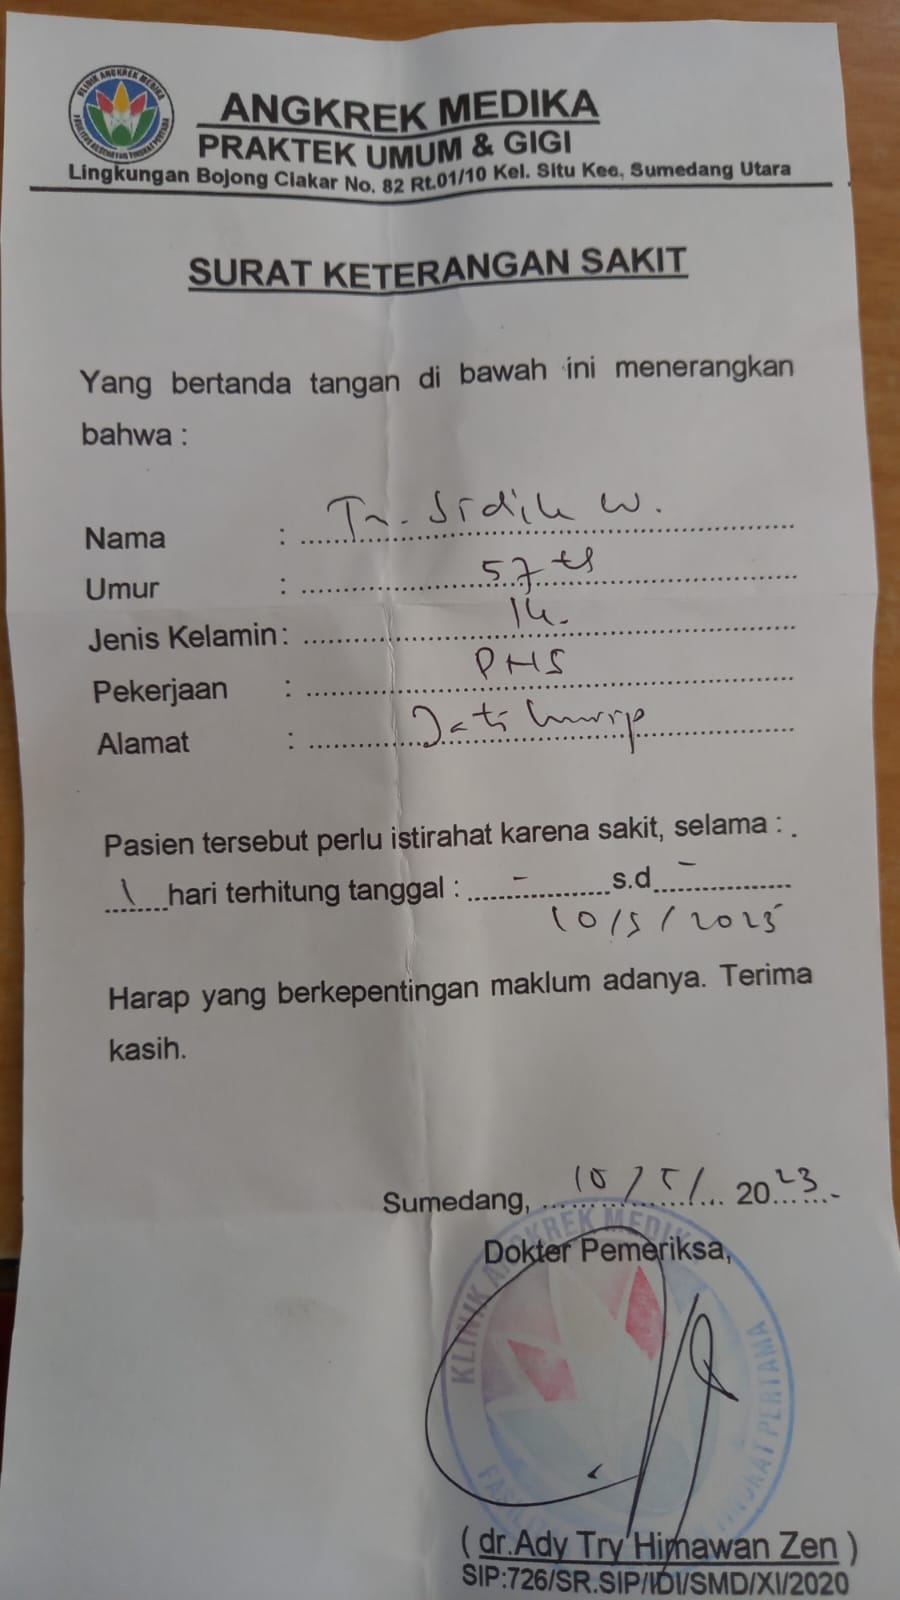 ANGKREK MEDIKA
PRAKTEK UMUM & GIGI
Lingkungan Bojong Ciakar No. 82 Rt.01/10 Kel. Situ Kec, Sumedang Utara
SURAT KETERANGAN SAKIT
Yang bertanda tangan di bawah ini menerangkan
bahwa :
Nama : Tn. Sidik W.
Umur : 57 th
Jenis Kelamin :
Pekerjaan : PNS
Alamat : Jati
Pasien tersebut perlu istirahat karena sakit, selama : .
1 hari terhitung tanggal : - s.d -
10/5/2023
Harap yang berkepentingan maklum adanya. Terima
kasih.
Sumedang, 10/5/ 2023
Dokter Pemeriksa,
KLINIK ANGKREK MEDIKA
TINGKAT PERTAMA
( dr.Ady Try Himawan Zen )
SIP:726/SR.SIP/IDI/SMD/XI/2020